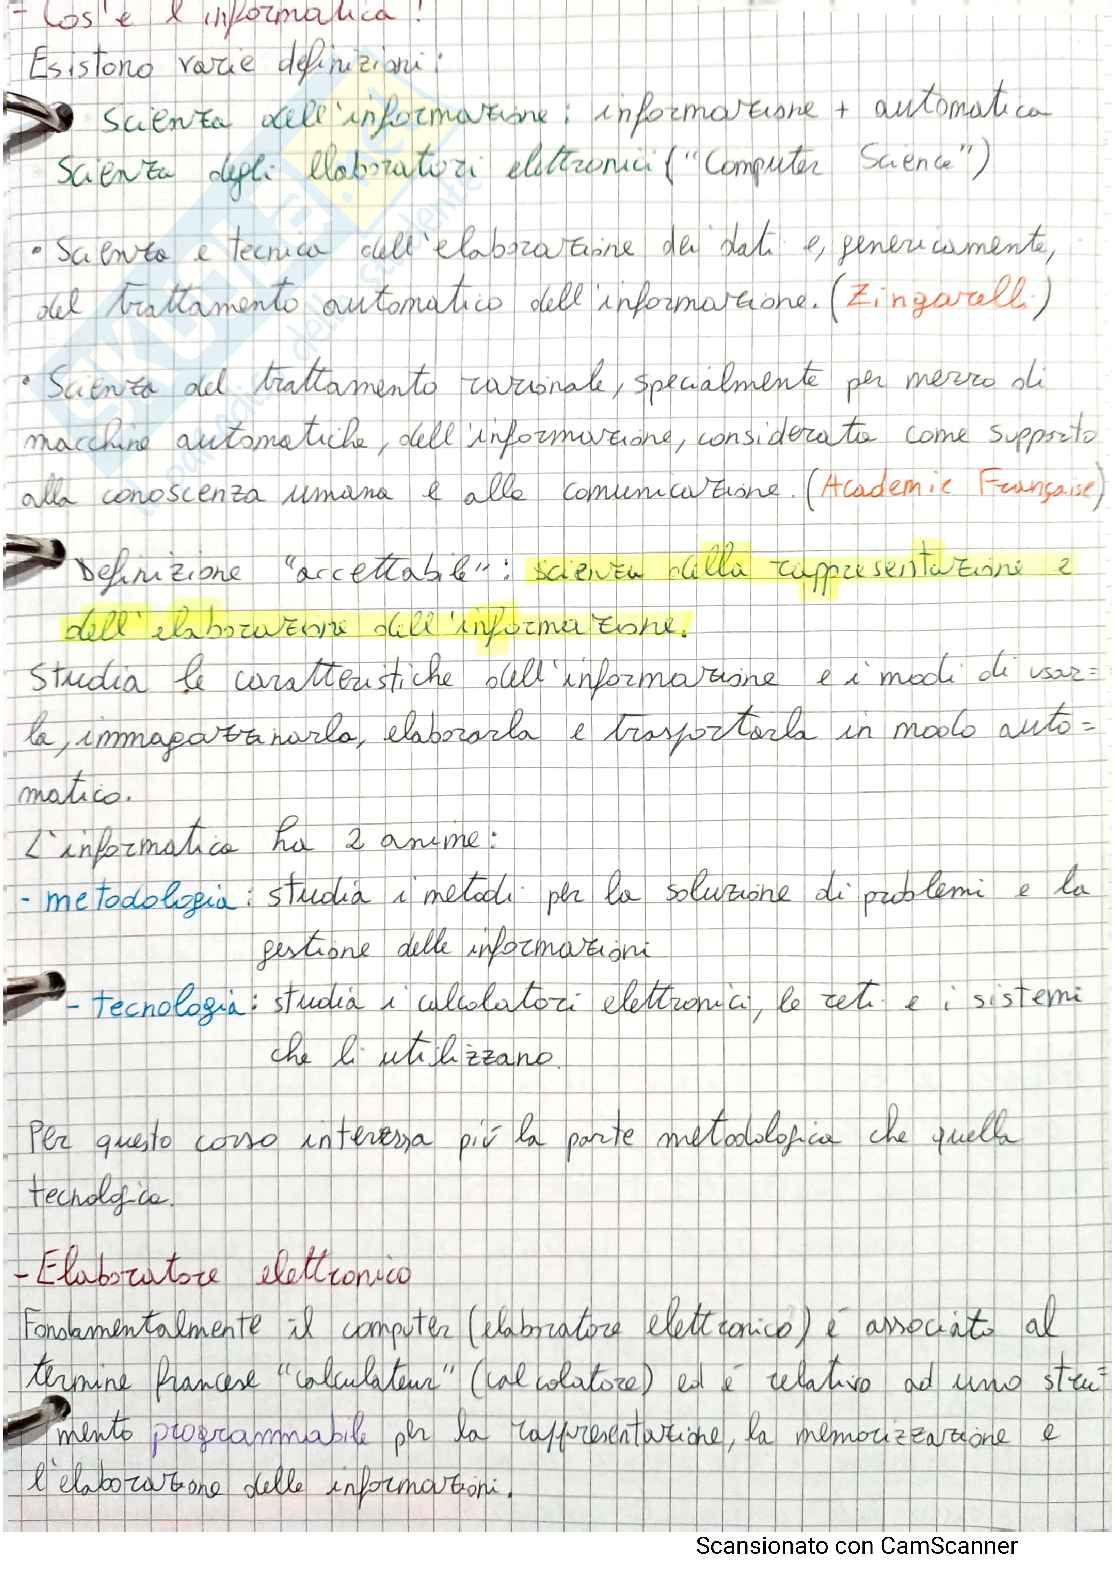 - Cos'è l'informatica?
Esistono varie definizioni:
Scienza dell'informazione: informazione + automatica
Scienza degli elaboratori elettronici ("Computer Science")
• Scienza e tecnica dell'elaborazione dei dati e, genericamente,
del trattamento automatico dell'informazione. (Zingarelli)
• Scienza del trattamento razionale, specialmente per mezzo di
macchine automatiche, dell'informazione, considerata come supporto
alla conoscenza umana e alla comunicazione. (Academie Française)
Definizione "accettabile": scienza della rappresentazione e
dell'elaborazione dell'informazione.
Studia le caratteristiche dell'informazione e i modi di usar=
la, immagazzinarla, elaborarla e trasportarla in modo auto=
matico.
L'informatica ha 2 anime:
- metodologia: studia i metodi per la soluzione di problemi e la
gestione delle informazioni
- tecnologia: studia i calcolatori elettronici, le reti e i sistemi
che li utilizzano.
Per questo corso interessa più la parte metodologica che quella
tecnologica.
- Elaboratore elettronico
Fondamentalmente il computer (elaboratore elettronico) è associato al
termine francese "calculateur" (calcolatore) ed è relativo ad uno stru=
mento programmabile per la rappresentazione, la memorizzazione e
l'elaborazione delle informazioni.
Scansionato con CamScanner